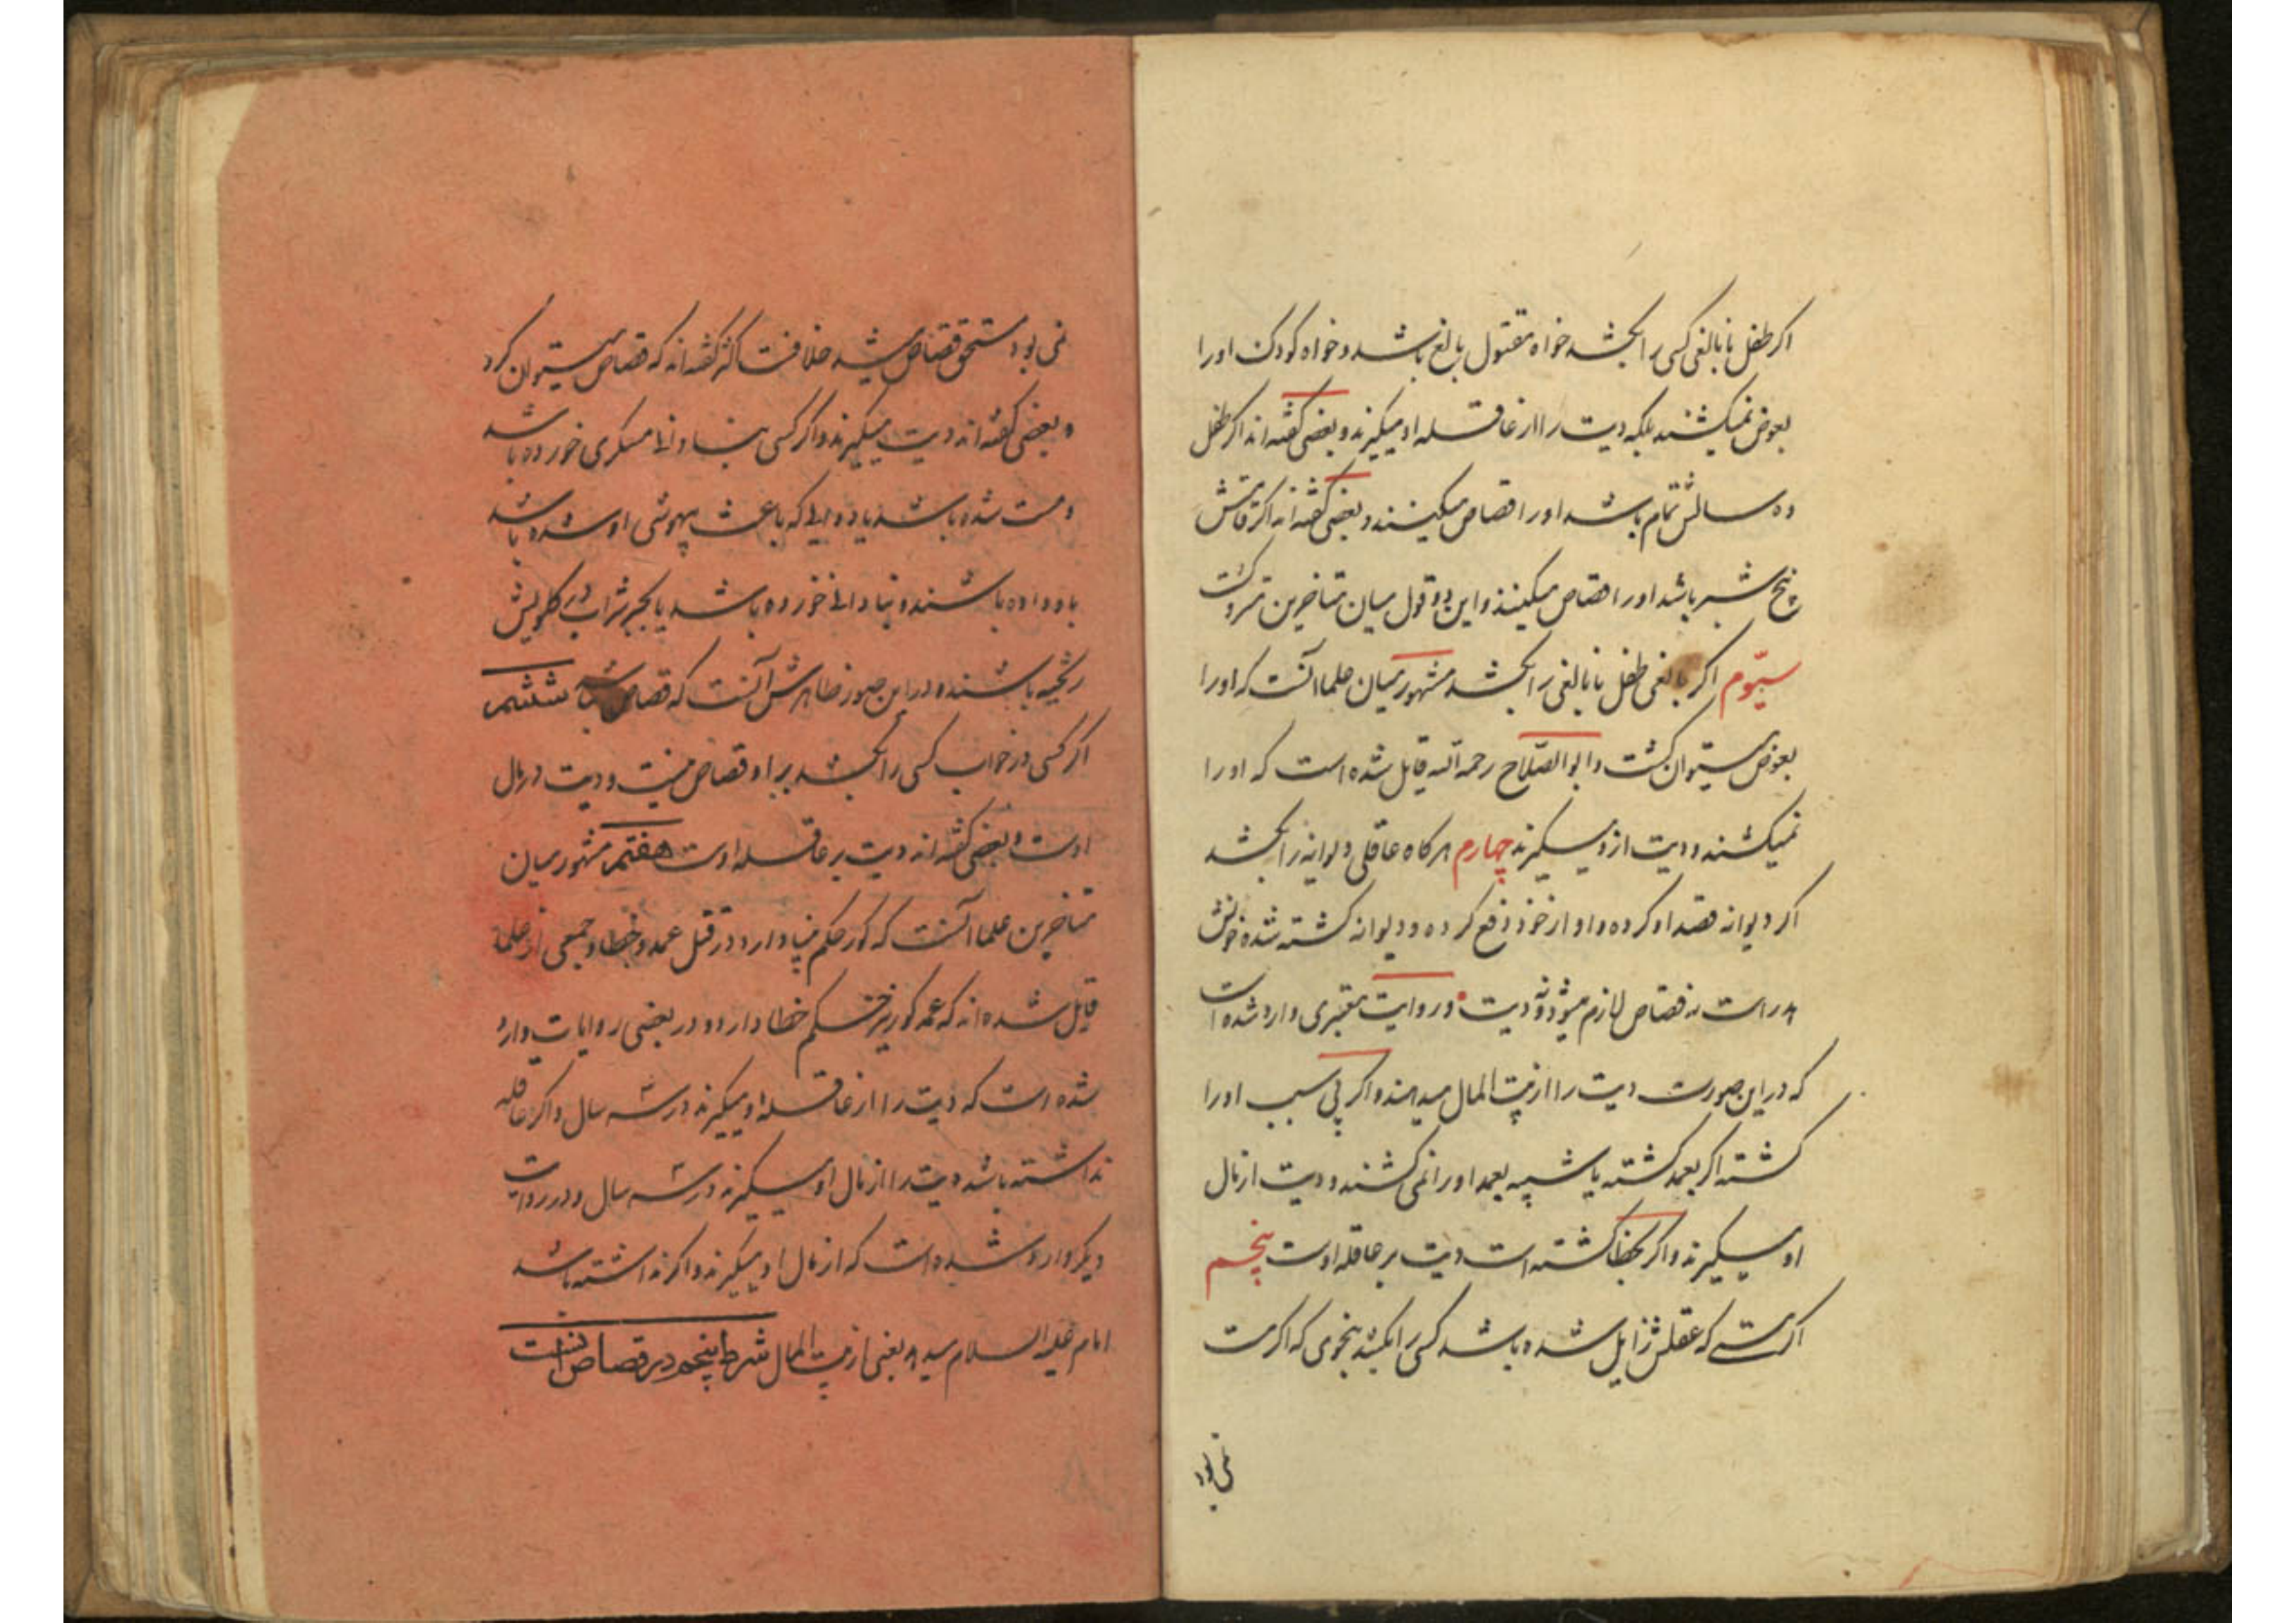 اکر طفل نابالغی کسی را بکشد خواه مقتول بالغ باشد و خواه کودک او را
بعوض نمیکشند بلکه دیت را از عاقله او میکیرند و بعضی کفته‌اند اکر طفل
ده سالش تمام باشد او را قصاص میکنند و بعضی کفته‌اند اکر قامتش
پنج شبر باشد او را قصاص میکنند و این دو قول میان متاخرین متروکست
سیّوم اکر بالغی طفل نابالغی را بکشد مشهور میان علما آنست که او را
بعوض میتوان کشت و ابو الصّلاح رحمه الله قایل شده است که او را
نمیکشند و دیت از و میکیرند چهارم هر کاه عاقلی دیوانه را بکشد
اکر دیوانه قصد او کرده و او از خود دفع کرده و دیوانه کشته شده خونش
هدر است نه قصاص لازم میشود و نه دیت و در روایت معتبری وارد شده است
که در این صورت دیت را از بیت المال میدهند و اکر بی سبب او را
کشته اکر بعمد کشته یا شبیه بعمد او را نمی کشند و دیت از مال
او میکیرند و اکر بخطا کشته است دیت بر عاقله اوست پنجم
اکر مستی که عقلش زایل شده باشد کسی را بکشد بنحوی که اکر مست
نمی بود
نمی بود مستحق قصاص میشد خلافست اکثر کفته‌اند که قصاص میتوان کرد
و بعضی کفته‌اند دیت میکیرند و اکر کسی بنادانی مسکری خورده باشد
و مست شده باشد یا دوایی که باعث بیهوشی او شده باشد
باو داده باشند و بنادانی خورده باشد یا بجبر شراب در کلویش
ریخته باشند در این صور ظاهرش آنست که قصاص نباشد ششم
اکر کسی در خواب کسی را بکشد بر او قصاص نیست و دیت در مال
اوست و بعضی کفته‌اند دیت بر عاقله اوست هفتم مشهور میان
متاخرین علما آنست که کور حکم بینا دارد در قتل عمد و خطا و جمعی از علما
قایل شده‌اند که عمد کور نیز حکم خطا دارد و در بعضی روایات وارد
شده است که دیت را از عاقله او میکیرند در سه سال و اکر عاقله
نداشته باشد دیت را از مال او میکیرند در سه سال و در روایت
دیکر وارد شده است که از مال او میکیرند و اکر نداشته باشد
امام علیه السلام میدهد یعنی از بیت المال شرط پنجم در قصاص آنست